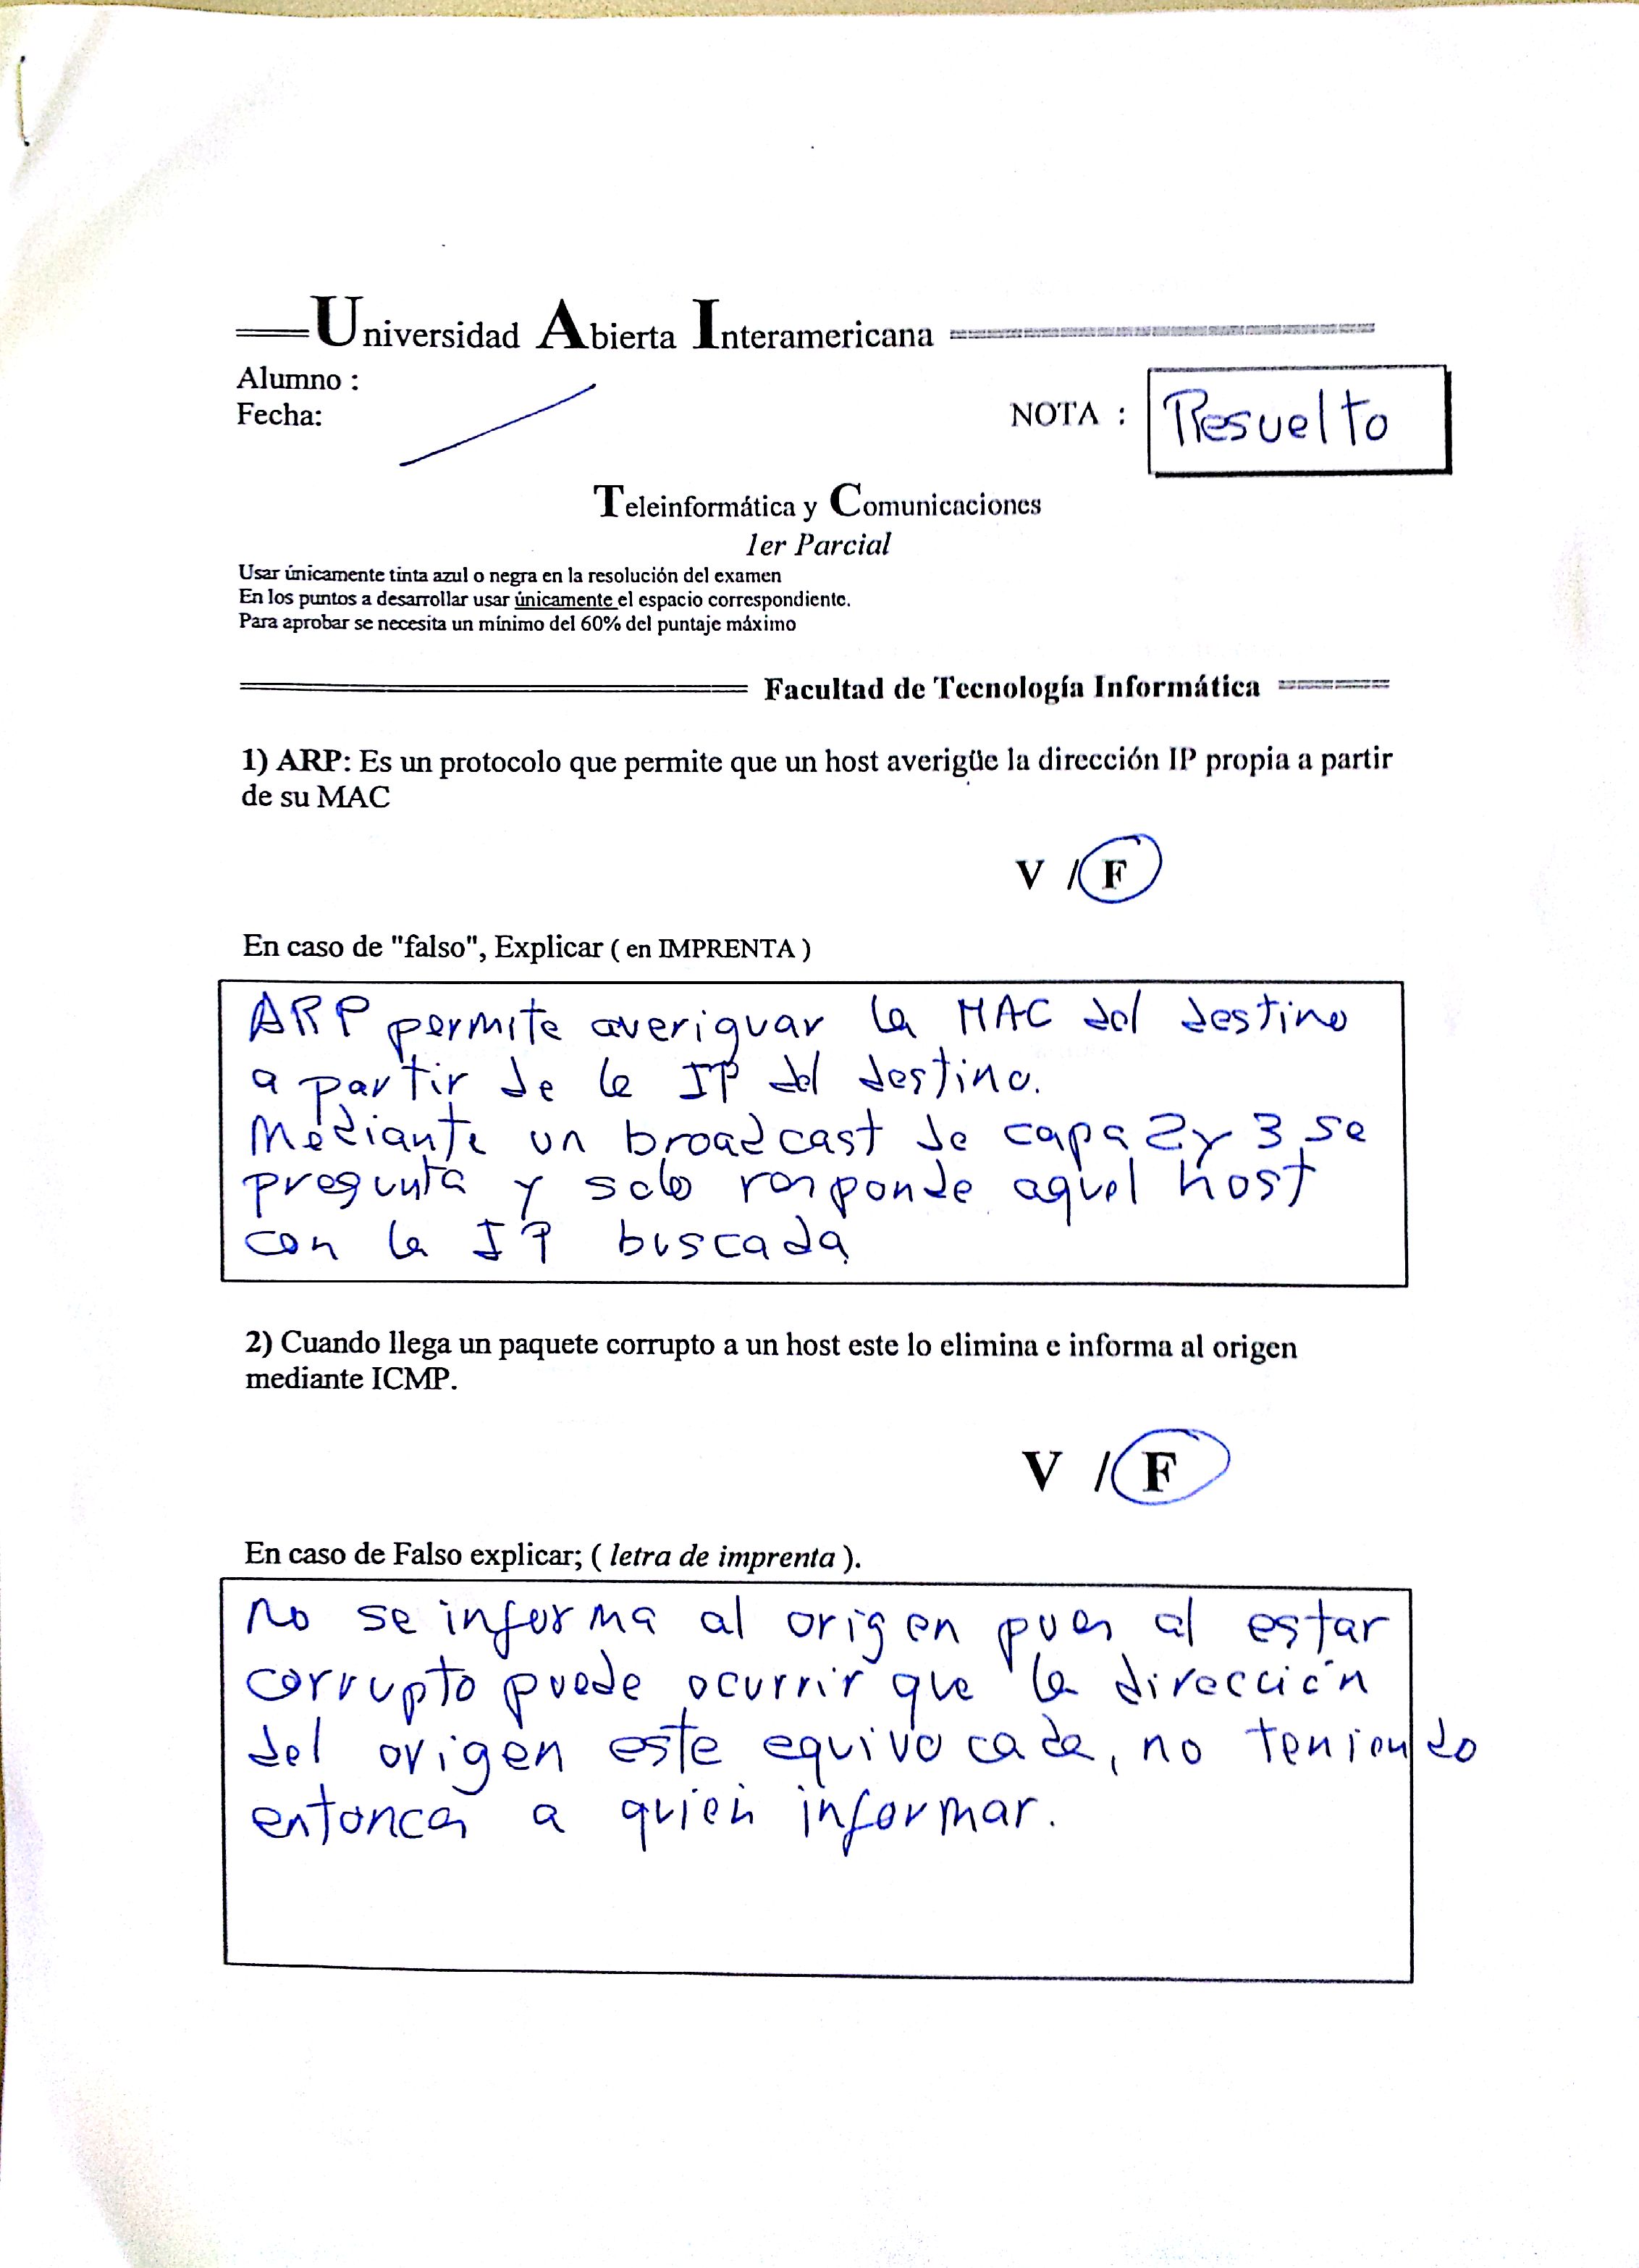 Universidad Abierta Interamericana
Alumno :
Fecha:
NOTA :
Resuelto
Teleinformática y Comunicaciones
1er Parcial
Usar únicamente tinta azul o negra en la resolución del examen
En los puntos a desarrollar usar únicamente el espacio correspondiente.
Para aprobar se necesita un mínimo del 60% del puntaje máximo
Facultad de Tecnología Informática
1) ARP: Es un protocolo que permite que un host averigüe la dirección IP propia a partir
de su MAC
V / F
En caso de "falso", Explicar ( en IMPRENTA )
ARP permite averiguar la MAC del destino
a partir de la IP del destino.
Mediante un broadcast de capa 2 y 3 se
pregunta y solo responde aquel host
con la IP buscada
2) Cuando llega un paquete corrupto a un host este lo elimina e informa al origen
mediante ICMP.
V / F
En caso de Falso explicar; ( letra de imprenta ).
No se informa al origen pues al estar
corrupto puede ocurrir que la dirección
del origen este equivocada, no teniendo
entonces a quien informar.